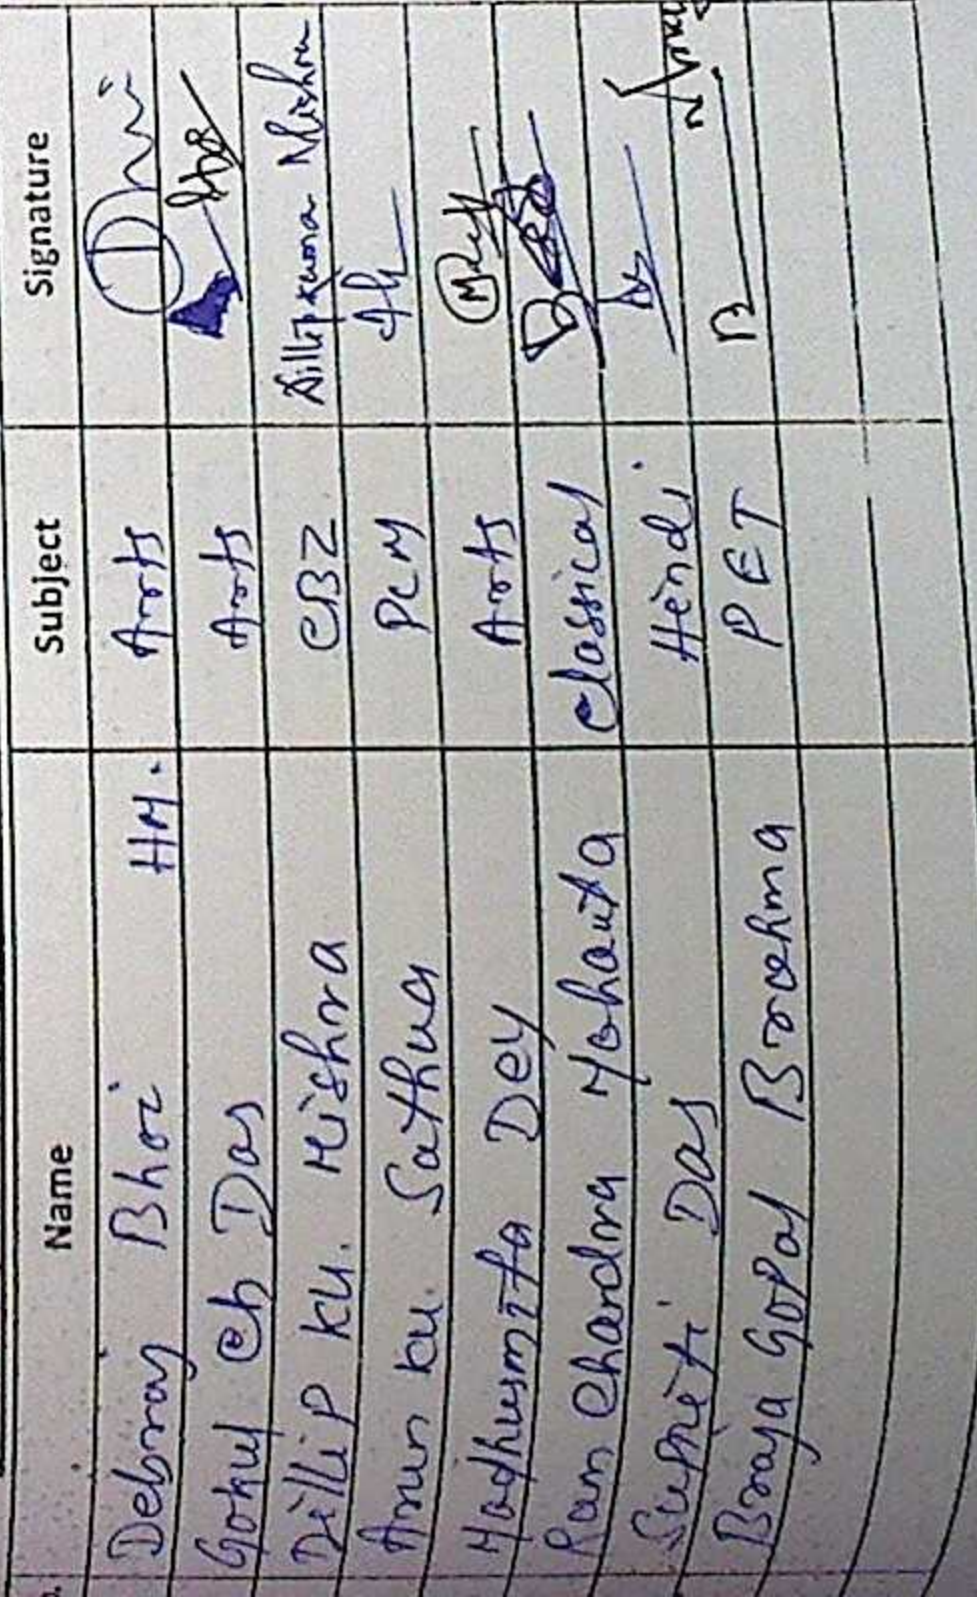 Name Subject Signature
Debraj Bhoi HM. Arts
Gokul Ch Das Arts
Dillip Ku. Mishra CBZ Dillip Kumar Mishra
Arun Ku. Sathua PCM
Madhusmita Dey Arts
Ram Chandra Mohanta Classical
Supriti Das Hindi
Braja Gopal Braehma PET